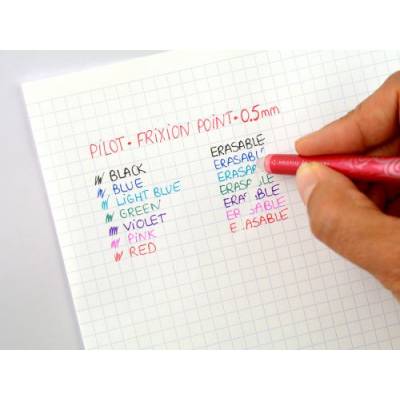 PILOT · FRIXION POINT · 0.5mm
BLACK
BLUE
LIGHT BLUE
GREEN
VIOLET
PINK
RED
ERASABLE
ERASABL
ERASAB
ERASABLE
ERASABLE
ERASABLE
E ASABLE